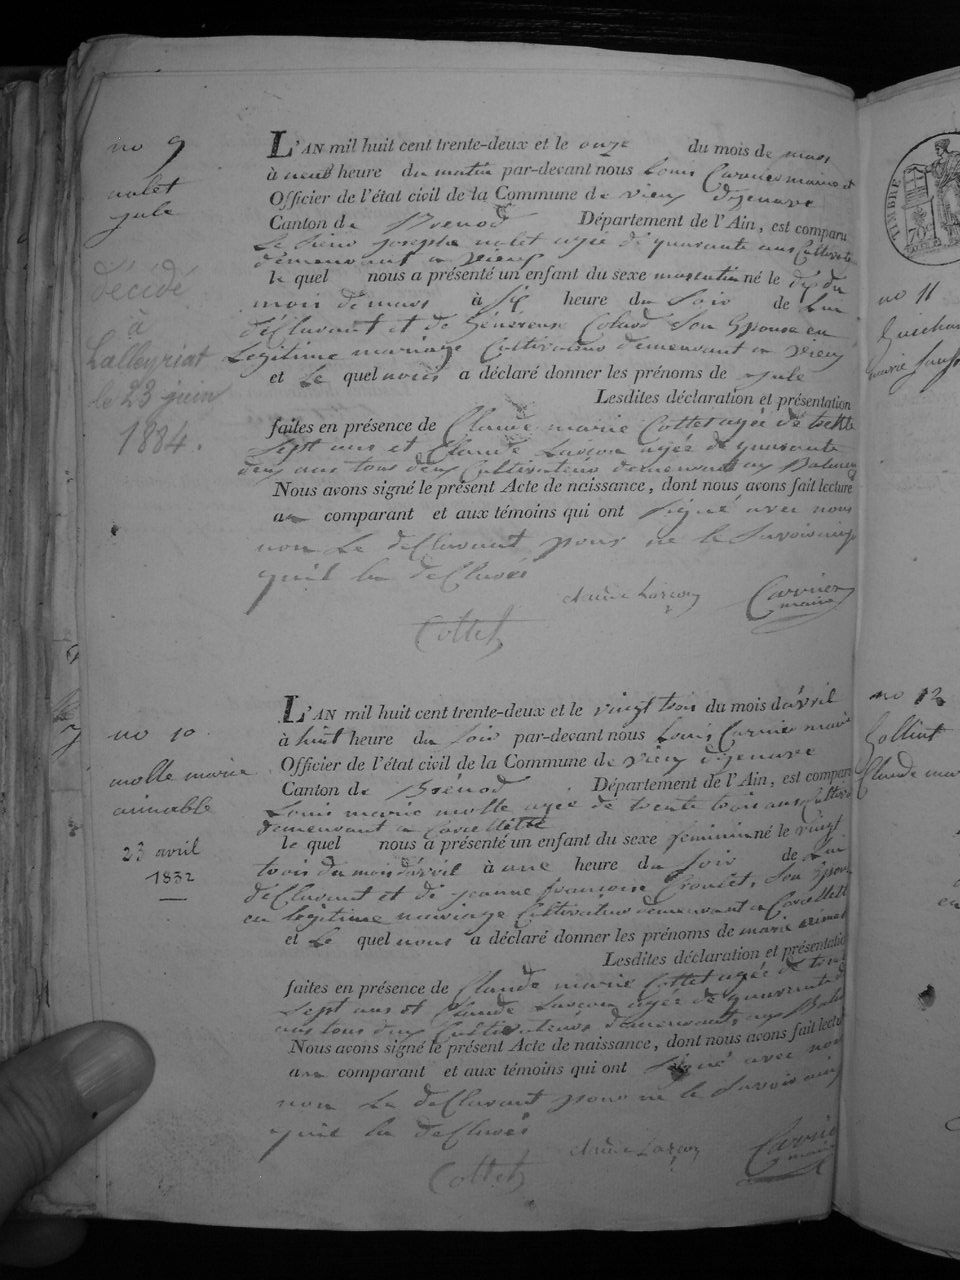 no 9
nalet
jule
décédé
à
Lalleyriat
le 23 juin
1884.
L'AN mil huit cent trente-deux et le onze du mois de mars
à neuf heure du matin par-devant nous Louis Carrier maire et
Officier de l'état civil de la Commune de vieu d'izenave
Canton de Brénod Département de l'Ain, est comparu
Le sieur joseph nalet agée de quarante ans Cultivate
demeurant a vieu
le quel nous a présenté un enfant du sexe masculin né le dix du
mois de mars à six heure du soir de lui
déClarant et de Généreuse Colard son Epouse en
Legitime mariage Cultivateurs demeurant a vieu
et Le quel nous a déclaré donner les prénoms de jule
Lesdites déclaration et présentation
faites en présence de Claude marie Cottet agée de trente
sept ans et Claude Larçon agée de quarante
deux ans tous deux Cultivateurs demeurant au
Nous avons signé le présent Acte de naissance, dont nous avons fait lecture
au comparant et aux témoins qui ont signé avec nous
non Le deClarant pour ne le savoir ainsi
qu'il la deClaré
claude Larçon Carrier
maire
Cottet
no 10
molle marie
aimable
23 avril
1832
L'AN mil huit cent trente-deux et le vingt trois du mois d'avril
à huit heure du soir par-devant nous Louis Carrier maire
Officier de l'état civil de la Commune de vieu d'izenave
Canton de Brénod Département de l'Ain, est comparu
Louis marie molle agée de trente trois ans Cultiva
demeurant a Corcelette
le quel nous a présenté un enfant du sexe féminin né le vingt
trois du mois d'avril à une heure du soir de lui
déClarant et de jeanne françoise son Epouse
en legitime mariage Cultivateurs demeurant a Corcelette
et Le quel nous a déclaré donner les prénoms de marie aimable
Lesdites déclaration et présentatio
faites en présence de Claude marie Cottet agée de trente
sept ans et Claude Larçon agée de quarante d
ans tous deux Cultivateurs demeurant au
Nous avons signé le présent Acte de naissance, dont nous avons fait lectu
au comparant et aux témoins qui ont signé avec nous
non Le deClarant pour ne le savoir ainsi
qu'il la deClaré
claude Larçon Carrier
maire
Cottet
TIMBRE
no 11
Guichon
marie
no 12
Golliet
Claude mar